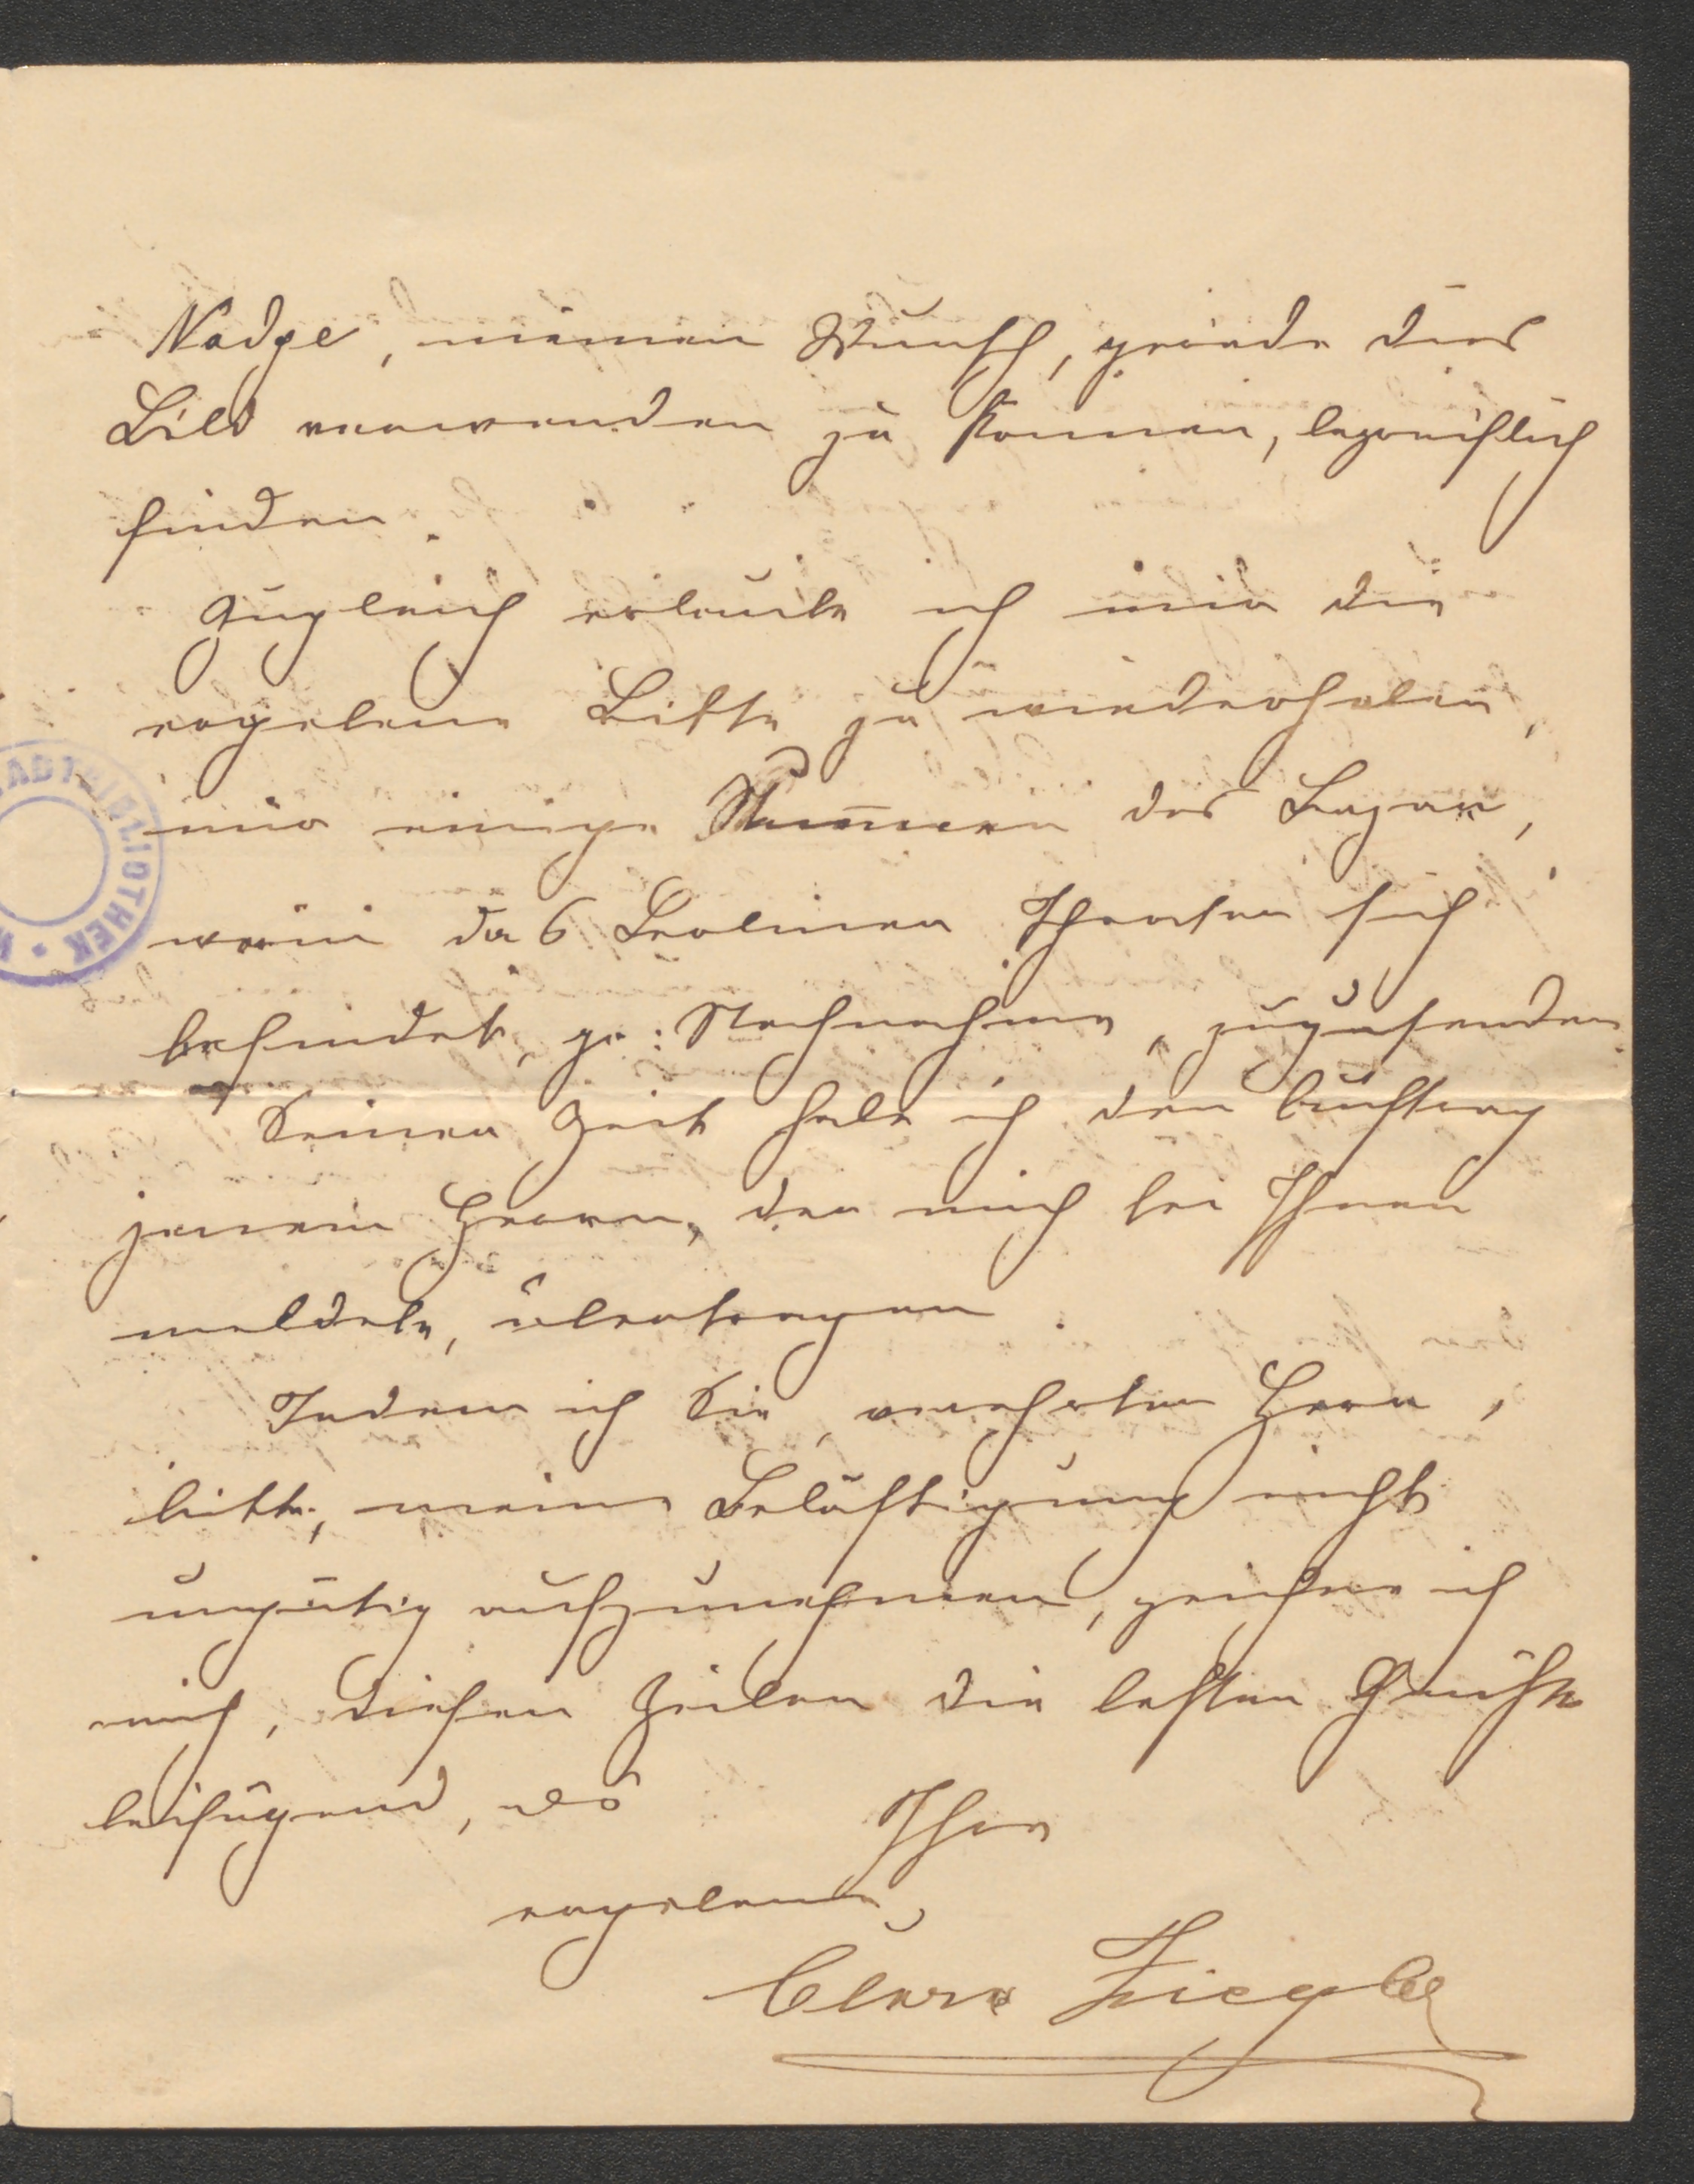 Nadge, meinen Wunsch, gerade dies
Bild verwenden zu können, begreiflich
finden.
Zugleich erlaube ich mir die
ergebene Bitte zu wiederholen,
mir einige Nummern des Bazar,
worin das Berliner Theater sich
befindet, pr: Nachnahme, zuzusenden
Seiner Zeit habe ich den Auftrag
jenem Herrn, der mich bei Ihnen
meldete, übertragen.
Indem ich Sie, verehrter Herr,
bitte, meine Belästigung nicht
ungütig aufzunehmen, zeichne ich
mich, diesen Zeilen die besten Grüße
beifügend, als
Ihre
ergebene,
Clara Ziegler
STADTBIBLIOTHEK